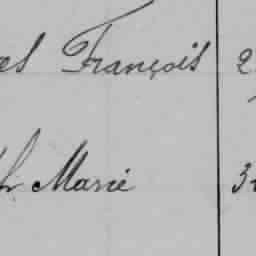 es François 2
h Marie 3